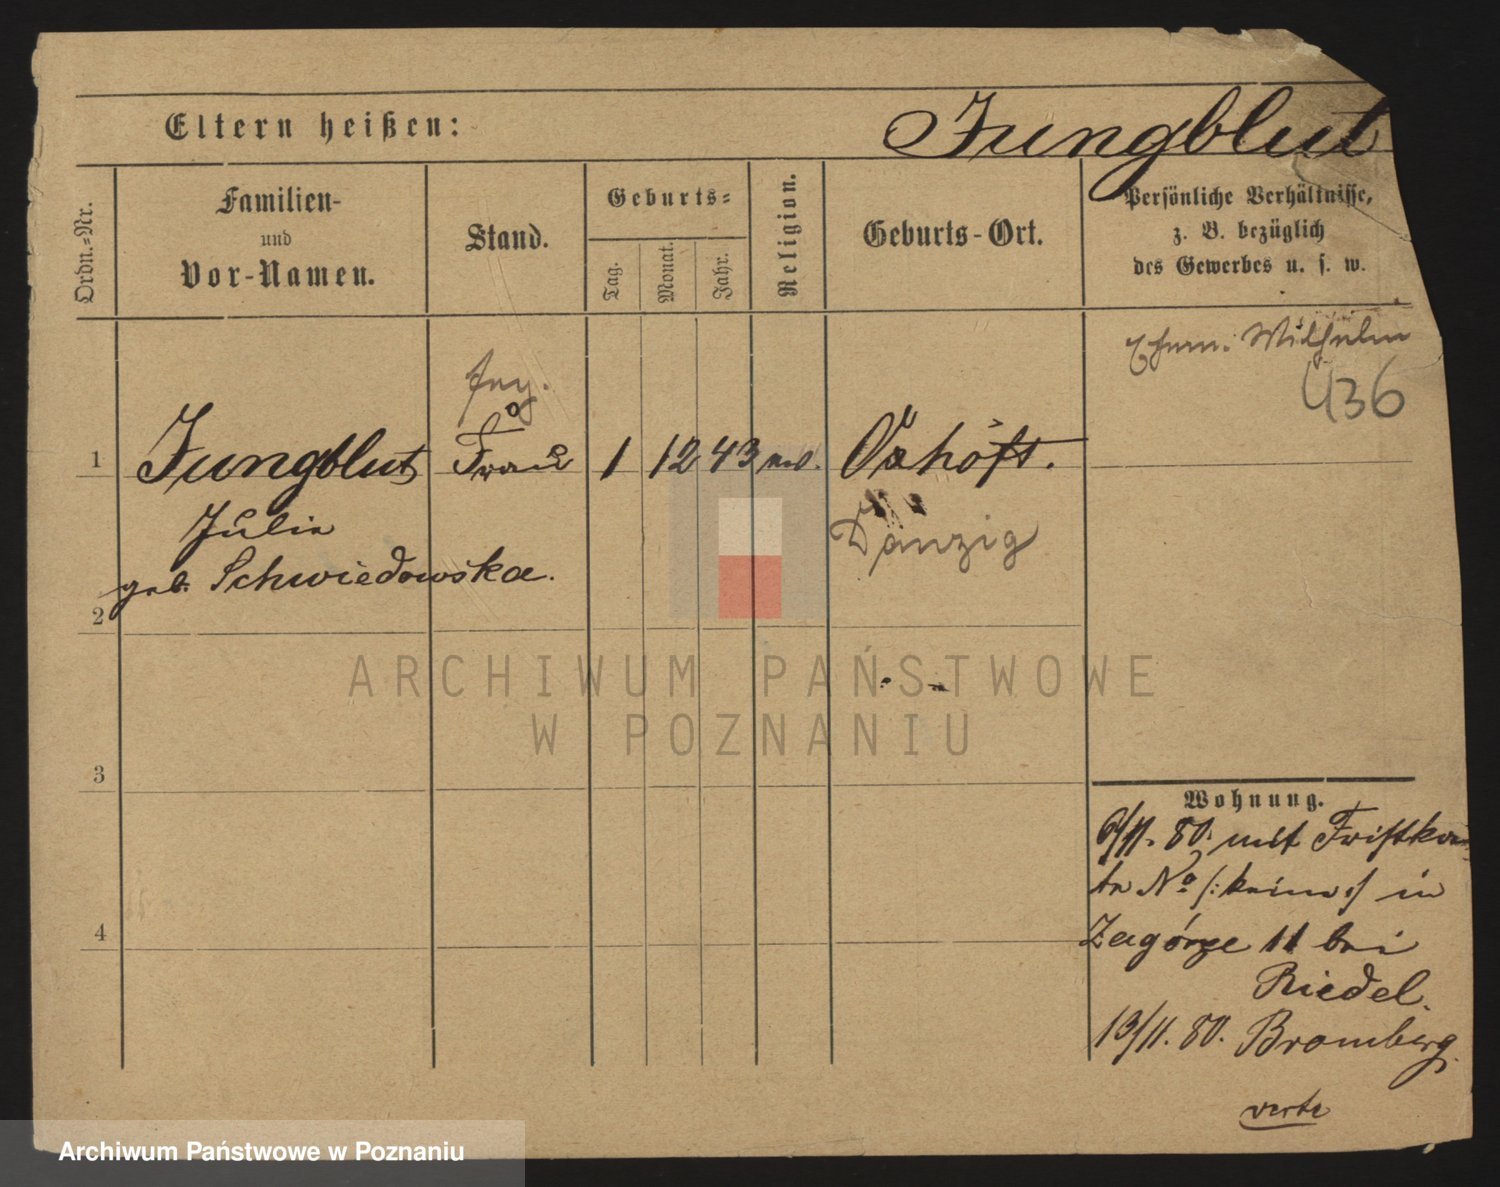 Eltern heißen:
Jungblut
Ordn.=Nr.
Familien-
und
Vor-Namen.
Stand.
Geburts=
Tag.
Monat.
Jahr.
Religion.
Geburts-Ort.
Persönliche Verhältnisse,
z. B. bezüglich
des Gewerbes u. s. w.
Wilhelm
436
1
Jungblut
Frau
1
12
43
Oxhöft.
Julie
Danzig
geb. Schwiedowska.
2
3
4
Wohnung.
6/11. 80. mit
te No /: keine :/ in
Zagórze 11 bei
Riedel.
13/11. 80. Bromberg.
verte
ARCHIWUM PAŃSTWOWE
W POZNANIU
Archiwum Państwowe w Poznaniu